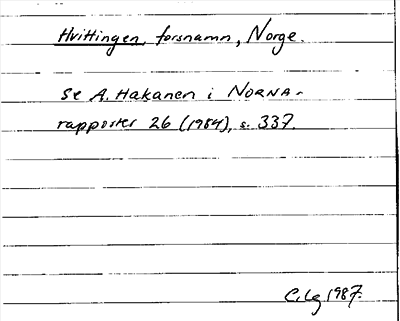 Hvittingen, forsnamn, Norge.
Se A. Hakanen i NORNA-
rapporter 26 (1984), s. 337.
C. Lg 1987.